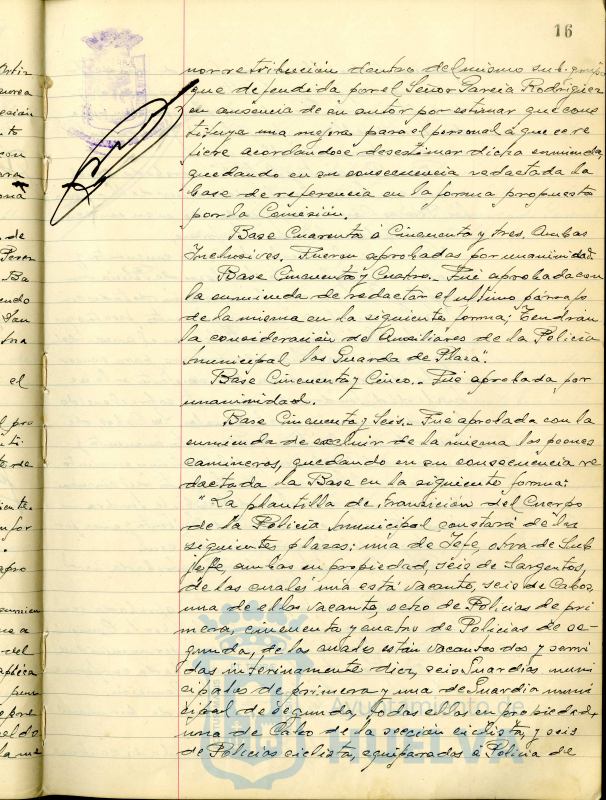 16
nor retribución dentro del mismo sub-grupo
que defendida por el Señor Garcia Rodriguez
en ausencia de su autor por estimar que cons
tituya una mejora para el personal á que se re
fiere acordandose desestimar dicha enmienda,
quedando en su consecuencia redactada la
base de referencia en la forma propuesta
por la Comisión.
Base Cuarenta á Cincuenta y tres. Ambas
Inclusives. Fueron aprobadas por unanimidad.
Base Cincuenta y Cuatro.- Fué aprobada con
la enmienda de redactar el ultimo párrafo
de la misma en la siguiente forma; "Tendrán
la consideración de Auxiliares de la Policía
Municipal los Guarda de Plaza".
Base Cincuenta y Cinco.- Fué aprobada por
unanimidad.
Base Cincuenta y Seis.- Fué aprobada con la
enmienda de excluir de la misma los peones
camineros, quedando en su consecuencia re
dactada la Base en la siguiente forma:
"La plantilla de transición del Cuerpo
de la Policía Municipal constará de las
siguientes plazas: una de Jefe, otra de Sub
Jefe, ambas en propiedad, seis de Sargentos,
de las cuales una está vacante, seis de Cabos,
una de ellas vacante, ocho de Policías de pri
mera, cincuenta y cuatro de Policías de se-
gunda, de las cuales están vacantes dos y servi
das interinamente diez, seis Guardias muni
cipales de primera y una de Guardia muni
cipal de Segunda, todas ellas en propiedad,
una de Cabo de la sección ciclista, y seis
de Policías ciclista, equiparados á Policía de
Ayuntamiento de
HUELVA